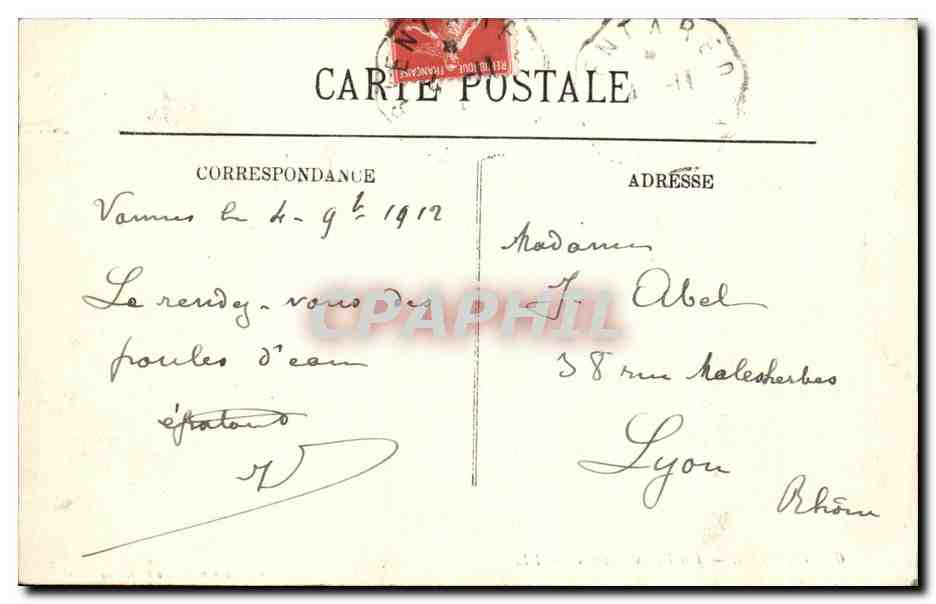 REPUBLIQUE FRANÇAISE
CARTE POSTALE
CORRESPONDANCE
Vannes le 4 - 9b 1912
Le rendez-vous des
poules d'eau
ADRESSE
Madame
J. Abel
38 rue Malesherbes
Lyon
Rhône
CPAPHIL